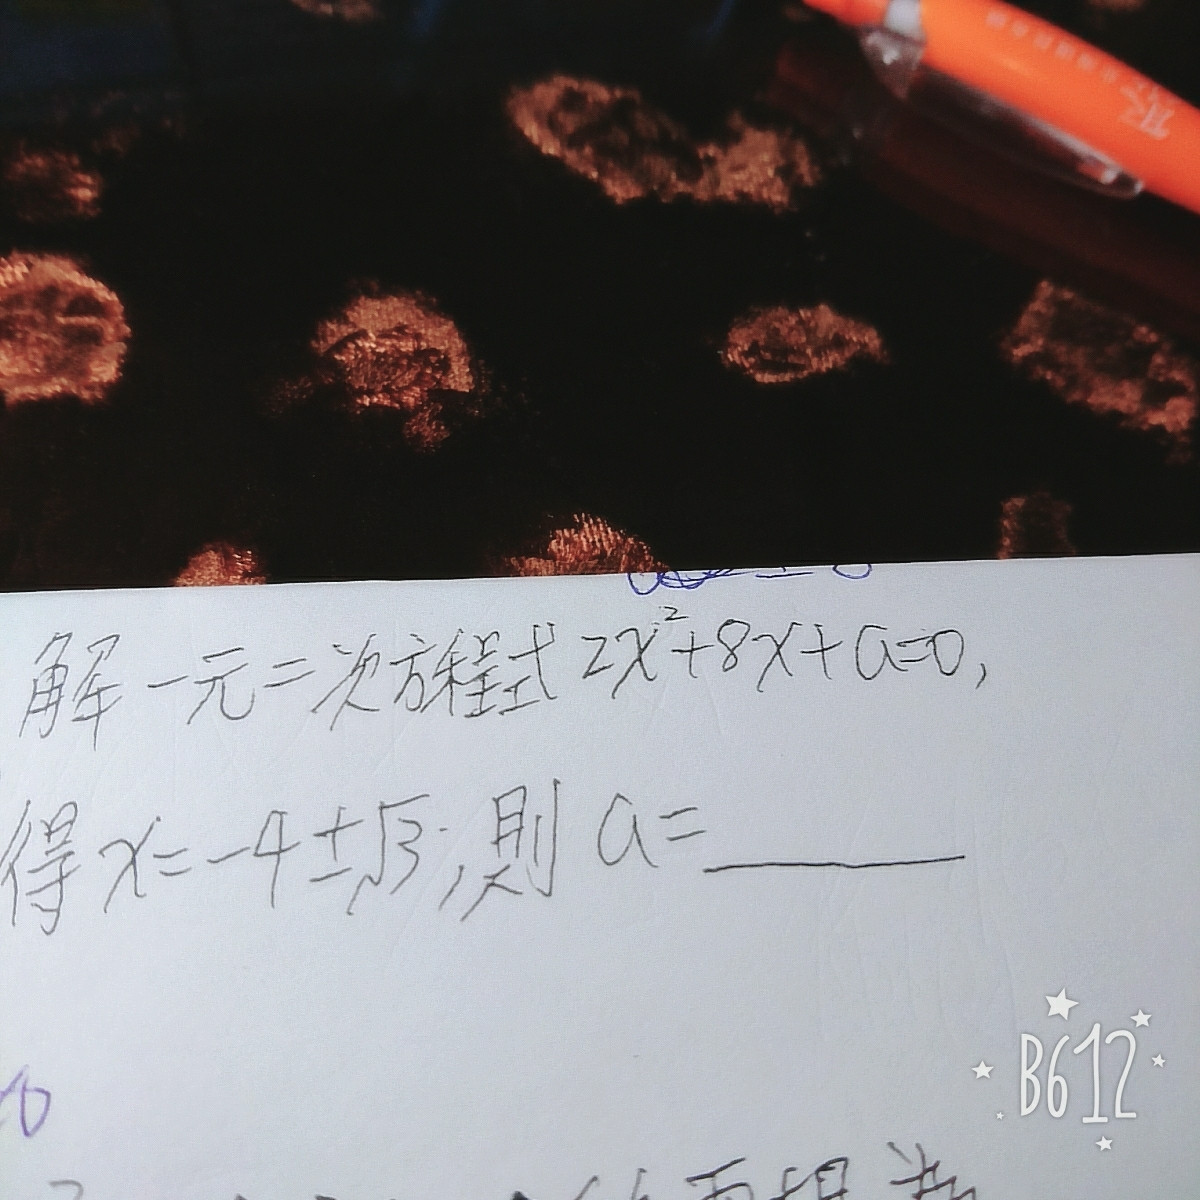 解一元二次方程式 2x²+8x+a=0,
得 x=-4±√3, 則 a=______
B612